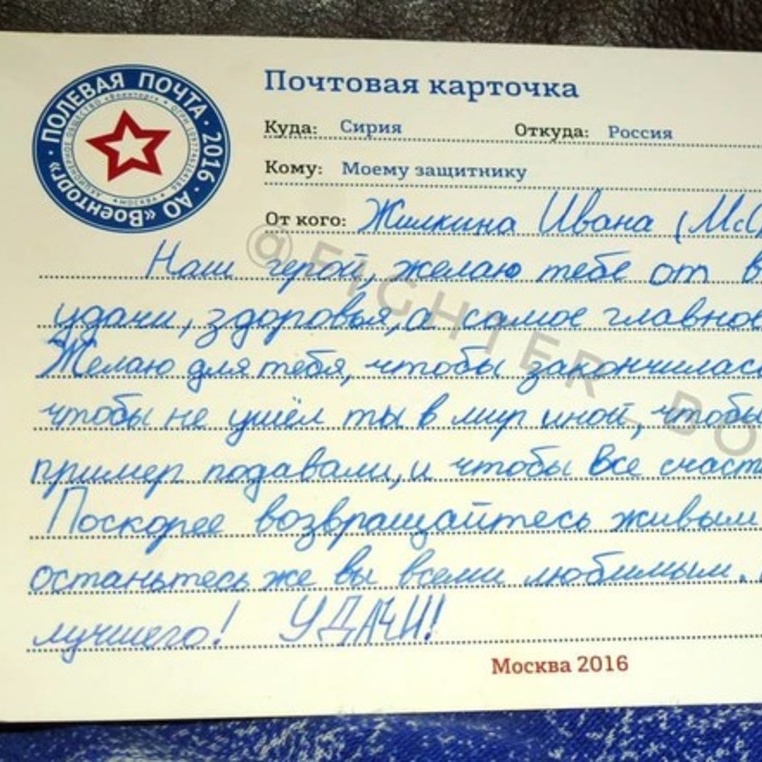 ПОЛЕВАЯ ПОЧТА · 2016 · АО «Военторг» ·
Почтовая карточка
Куда: Сирия Откуда: Россия
Кому: Моему защитнику
От кого: Жилкина Ивана (МсС
Наш герой, желаю тебе от в
удачи, здоровья, а самое главное
Желаю для тебя, чтобы закончилась
чтобы не ушёл ты в мир иной, чтобы
пример подавали, и чтобы все счаст
Поскорее возвращайтесь живым
останьтесь же вы всеми любимым.
лучшего! УДАЧИ!
Москва 2016
@FIGHTER_BO